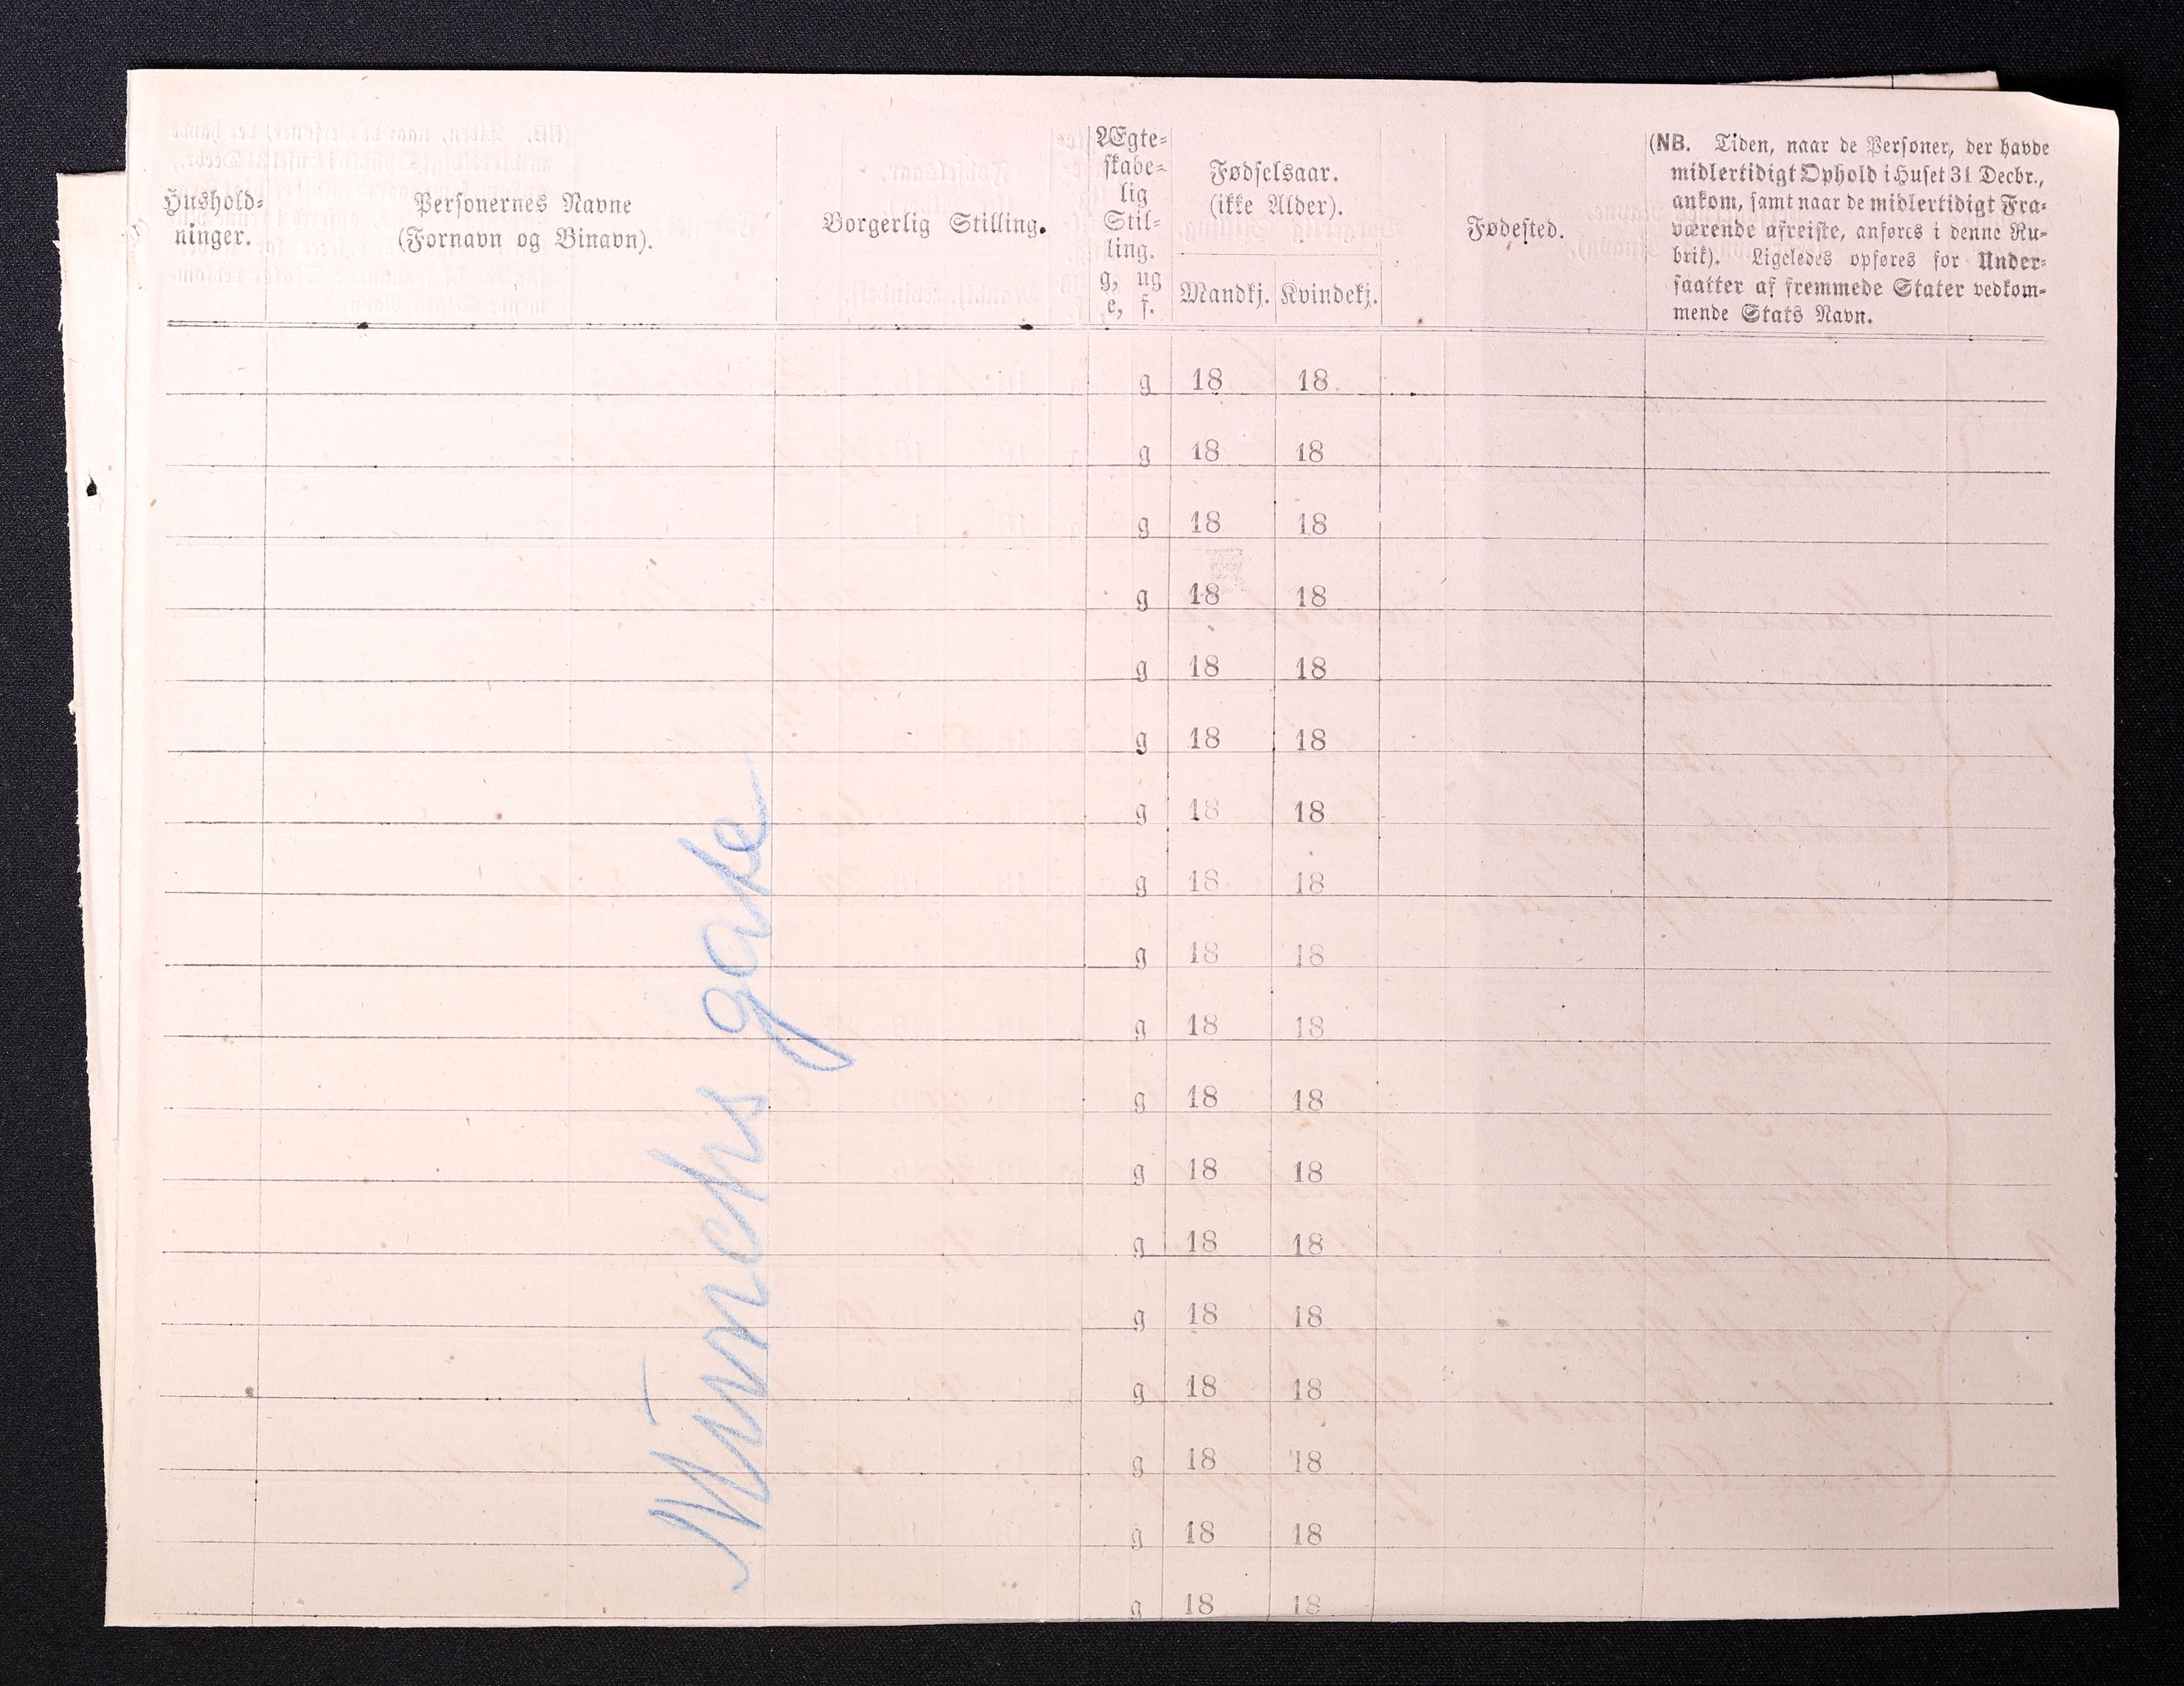 Hushold-
ninger.
Personernes Navne
(Fornavn og Binavn).
Borgerlig Stilling.
Ægte-
skabe-
lig
Stil-
ling.
g, ug
e, f.
Fødselsaar.
(ikke Alder).
Mandkj. Kvindekj.
Fødested.
(NB. Tiden, naar de Personer, der havde
midlertidigt Ophold i Huset 31 Decbr.,
ankom, samt naar de midlertidigt Fra-
værende afreiste, anføres i denne Ru-
brik). Ligeledes opføres for Under-
saatter af fremmede Stater vedkom-
mende Stats Navn.
g 18 18
g 18 18
g 18 18
g 18 18
g 18 18
g 18 18
g 18 18
g 18 18
g 18 18
g 18 18
g 18 18
g 18 18
g 18 18
g 18 18
g 18 18
g 18 18
g 18 18
g 18 18
Münchs gate